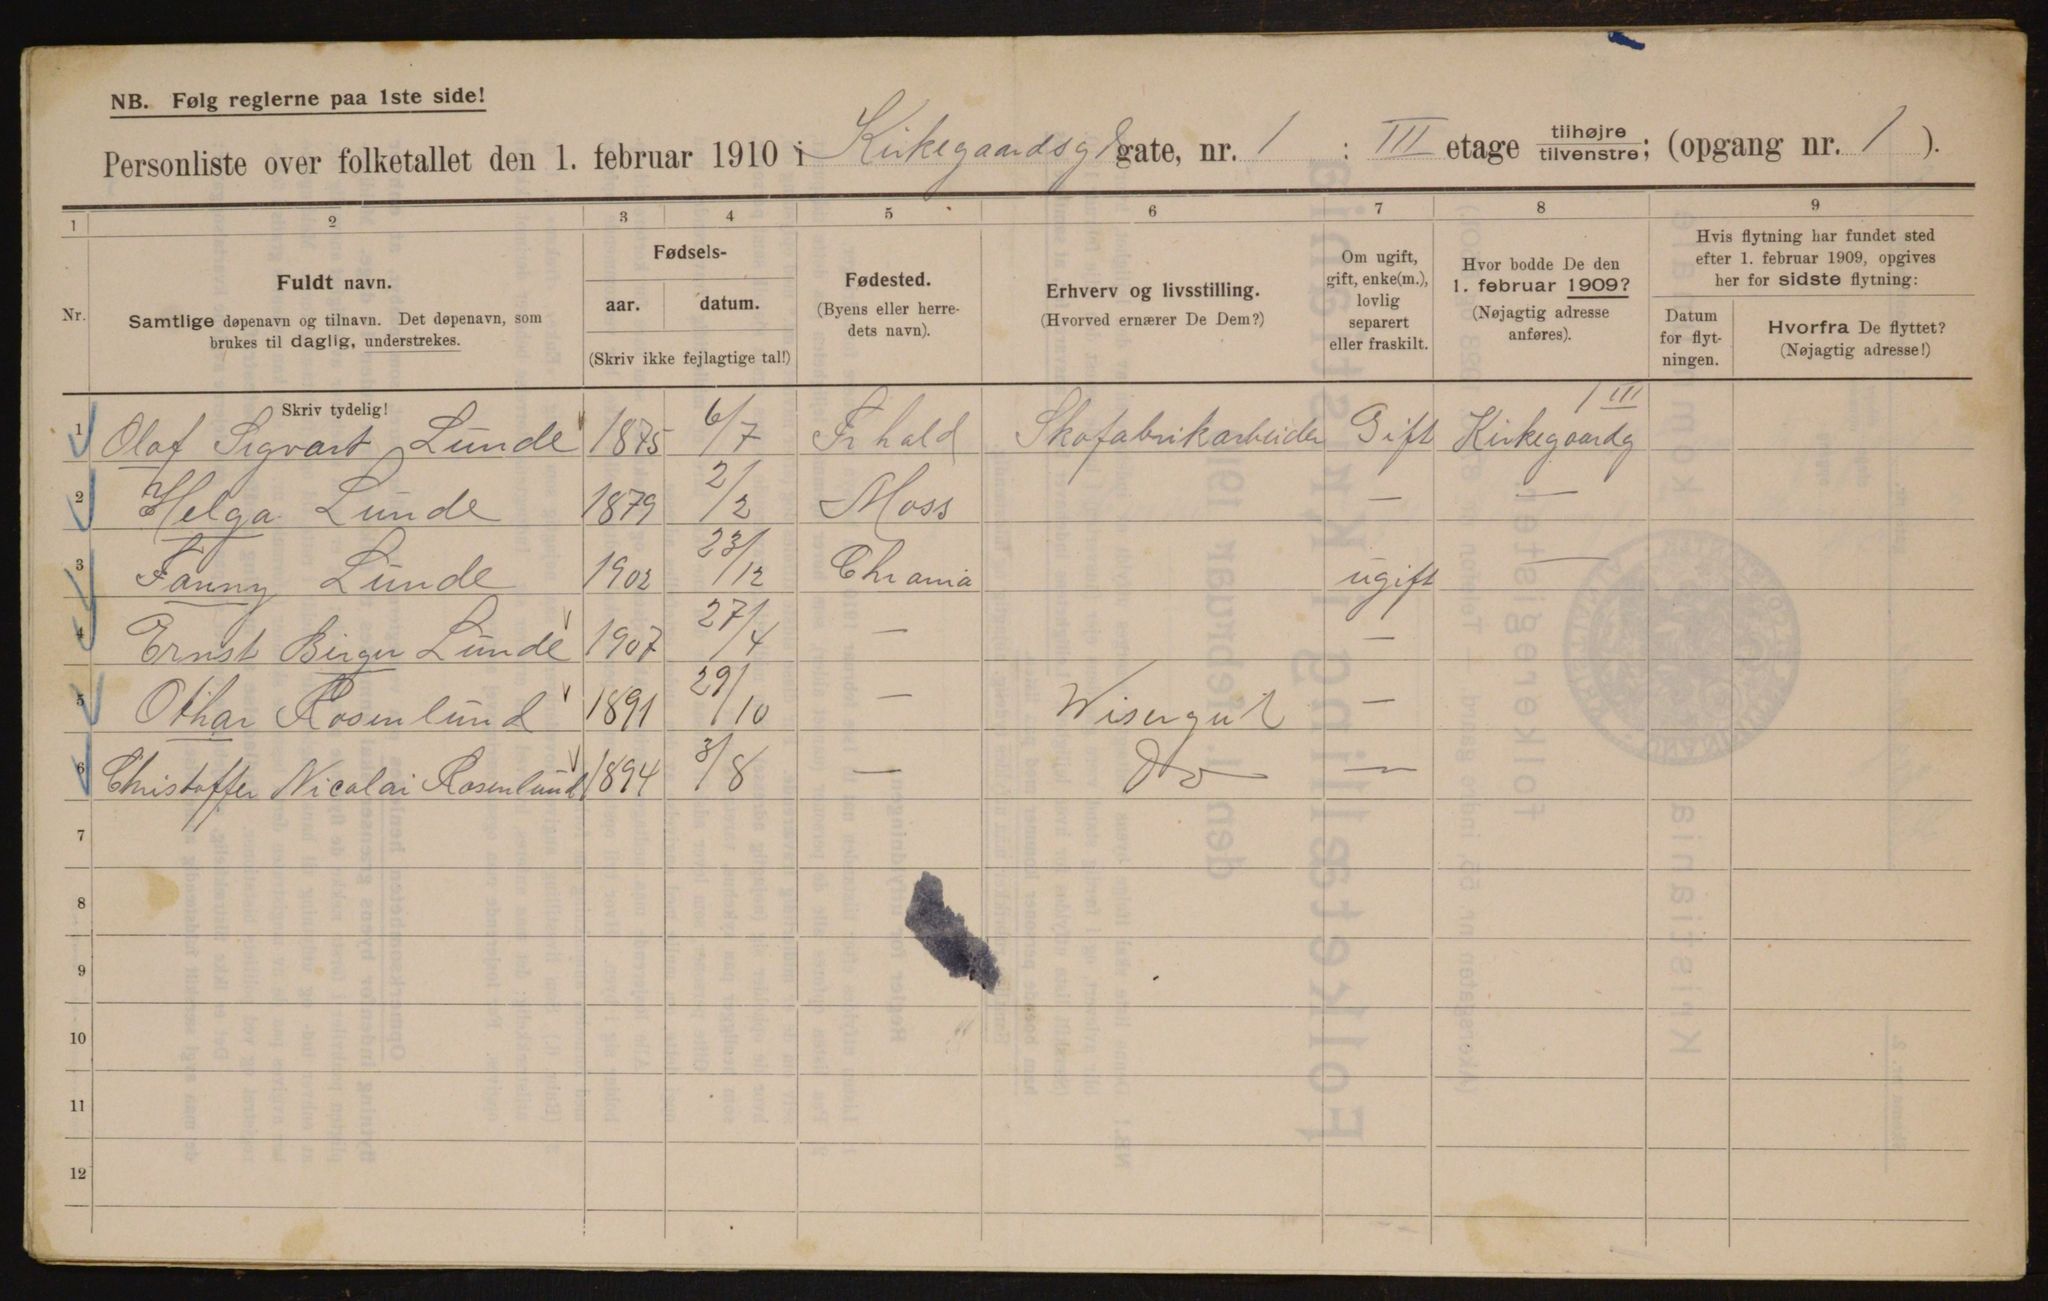 NB. Følg reglerne paa 1ste side!
Personliste over folketallet den 1. februar 1910 i Kirkegaardsgd gate, nr. 1 : III etage tilhøjre/tilvenstre; (opgang nr. 1 ).
1 2 3 4 5 6 7 8 9
Nr.
Fuldt navn.
Samtlige døpenavn og tilnavn. Det døpenavn, som
brukes til daglig, understrekes.
Fødsels-
aar. datum.
(Skriv ikke fejlagtige tal!)
Fødested.
(Byens eller herre-
dets navn).
Erhverv og livsstilling.
(Hvorved ernærer De Dem?)
Om ugift,
gift, enke(m.),
lovlig
separert
eller fraskilt.
Hvor bodde De den
1. februar 1909?
(Nøjagtig adresse
anføres).
Hvis flytning har fundet sted
efter 1. februar 1909, opgives
her for sidste flytning:
Datum
for flyt-
ningen.
Hvorfra De flyttet?
(Nøjagtig adresse!)
Skriv tydelig!
1 Olaf Sigvart Lunde 1875 6/7 Fr hald Skofabrikarbeider Gift Kirkegaardg 1 III
2 Helga Lunde 1879 2/2 Moss — —
3 Fanny Lunde 1902 23/12 Chrania ugift —
4 Ernst Birger Lunde 1907 27/4 — —
5 Othar Rosenlund 1891 29/10 — Wisergut —
6 Christoffer Nicolai Rosenlund 1894 3/8 — Do —
7
8
9
10
11
12